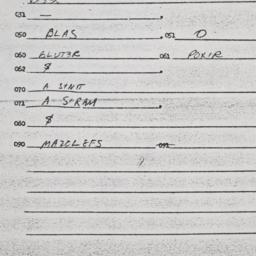 031 —
050 BLAS 051 O
060 ELUT3R 061 POXIR
062 $
070 A SYNT
071 A STRAM
080 $
090 MAZCLEFS 091